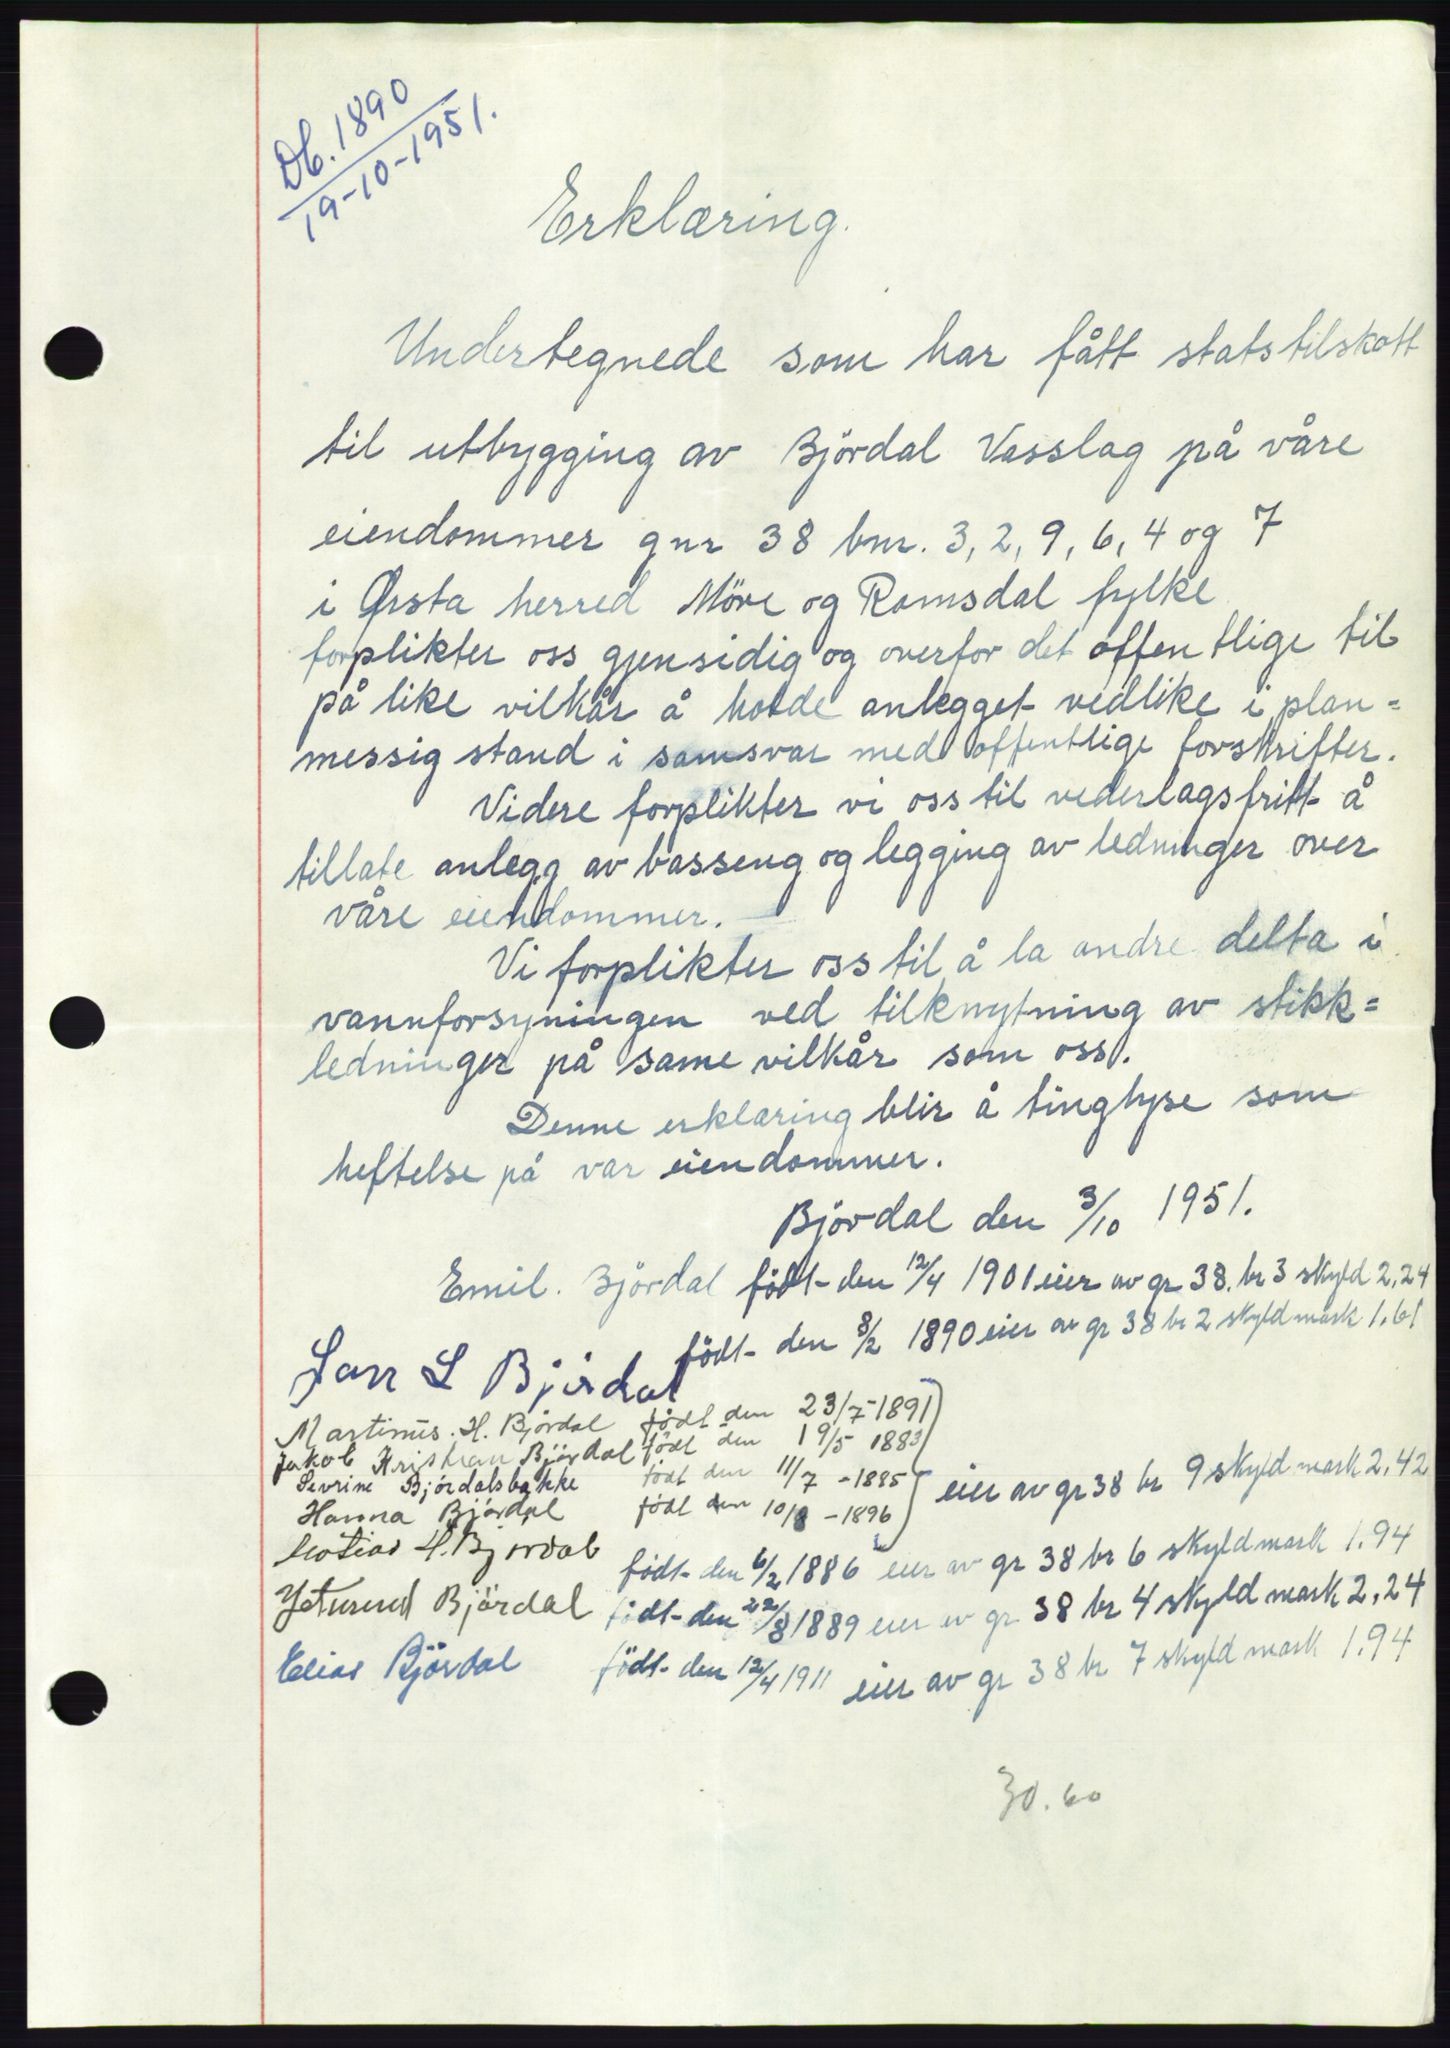 Db. 1890
19-10-1951.
Erklæring.
Undertegnede som har fått statstilskott
til utbygging av Björdal Vasslag på våre
eiendommer gnr 38 bnr. 3, 2, 9, 6, 4 og 7
i Ørsta herred Möre og Romsdal fylke
forplikter oss gjensidig og overfor det offentlige til
på like vilkår å holde anlegget vedlike i plan=
messig stand i samsvar med offentlige forskrifter.
Videre forplikter vi oss til vederlagsfritt å
tillate anlegg av basseng og legging av ledninger over
våre eiendommer.
Vi forplikter oss til å la andre delta i
vannforsyningen ved tilknytning av stikk=
ledninger på same vilkår som oss.
Denne erklæring blir å tinglyse som
heftelse på var eiendommer.
Björdal den 3/10 1951.
Emil. Björdal födt den 12/4 1901 eier av gr 38. br 3 skyld 2,24
födt den 8/2 1890 eier av gr 38 br 2 skyldmark 1.61
L Bjørdal
Martinus. H. Björdal födt den 23/7-1891
Jakob Kristian Björdal födt den 19/5 1883
Sevrine Bjørdalsbakke födt den 11/7 -1885
eier av gr 38 br 9 skyld mark 2.42
Hanna Bjørdal födt den 10/8 -1896
H. Bjørdal födt den 6/2 1886 eier av gr 38 br 6 skyldmark 1.94
Björdal födt den 22/8 1889 eier av gr 38 br 4 skyld mark 2,24
Elias Björdal födt den 12/4 1911 eier av gr 38 br 7 skyld mark 1.94
30.60